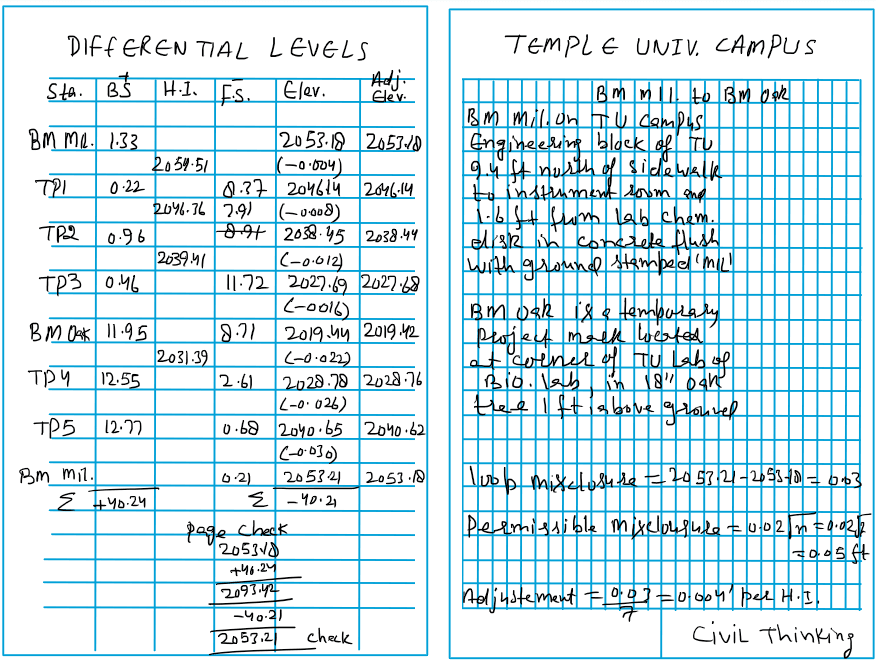 DIFFERENTIAL LEVELS
+ − Adj.
Sta. BS H.I. F.S. Elev. Elev.
BM Mil. 1.33 2053.18 2053.18
2054.51 (-0.004)
TP1 0.22 8.37 2046.14 2046.14
2046.36 7.91 (-0.008)
TP2 0.96 8.91 2038.45 2038.44
2039.41 (-0.012)
TP3 0.46 11.72 2027.69 2027.68
(-0.016)
BM Oak 11.95 8.71 2019.44 2019.42
2031.39 (-0.022)
TP4 12.55 2.61 2028.78 2028.76
(-0.026)
TP5 12.77 0.68 2040.65 2040.62
(-0.030)
Bm mil. 0.21 2053.21 2053.18
Σ +40.24 Σ -40.21
page check
2053.18
+40.24
2093.42
-40.21
2053.21 check
TEMPLE UNIV. CAMPUS
Bm mil. to Bm oak
Bm Mil. on TU Campus
Engineering block of TU
9.4 ft north of sidewalk
to instrument room and
1.6 ft from Lab Chem.
disk in concrete flush
with ground stamped 'MIL'
BM oak is a temporary
project mark located
at corner of TU Lab of
Bio. lab, in 18" oak
tree 1 ft above ground
loop mixclosure = 2053.21-2053.18 = 0.03
Permissible mixclousure = 0.02√n = 0.02√7
= 0.05 ft
Adjustement = 0.03/7 = 0.004' per H.I.
Civil Thinking